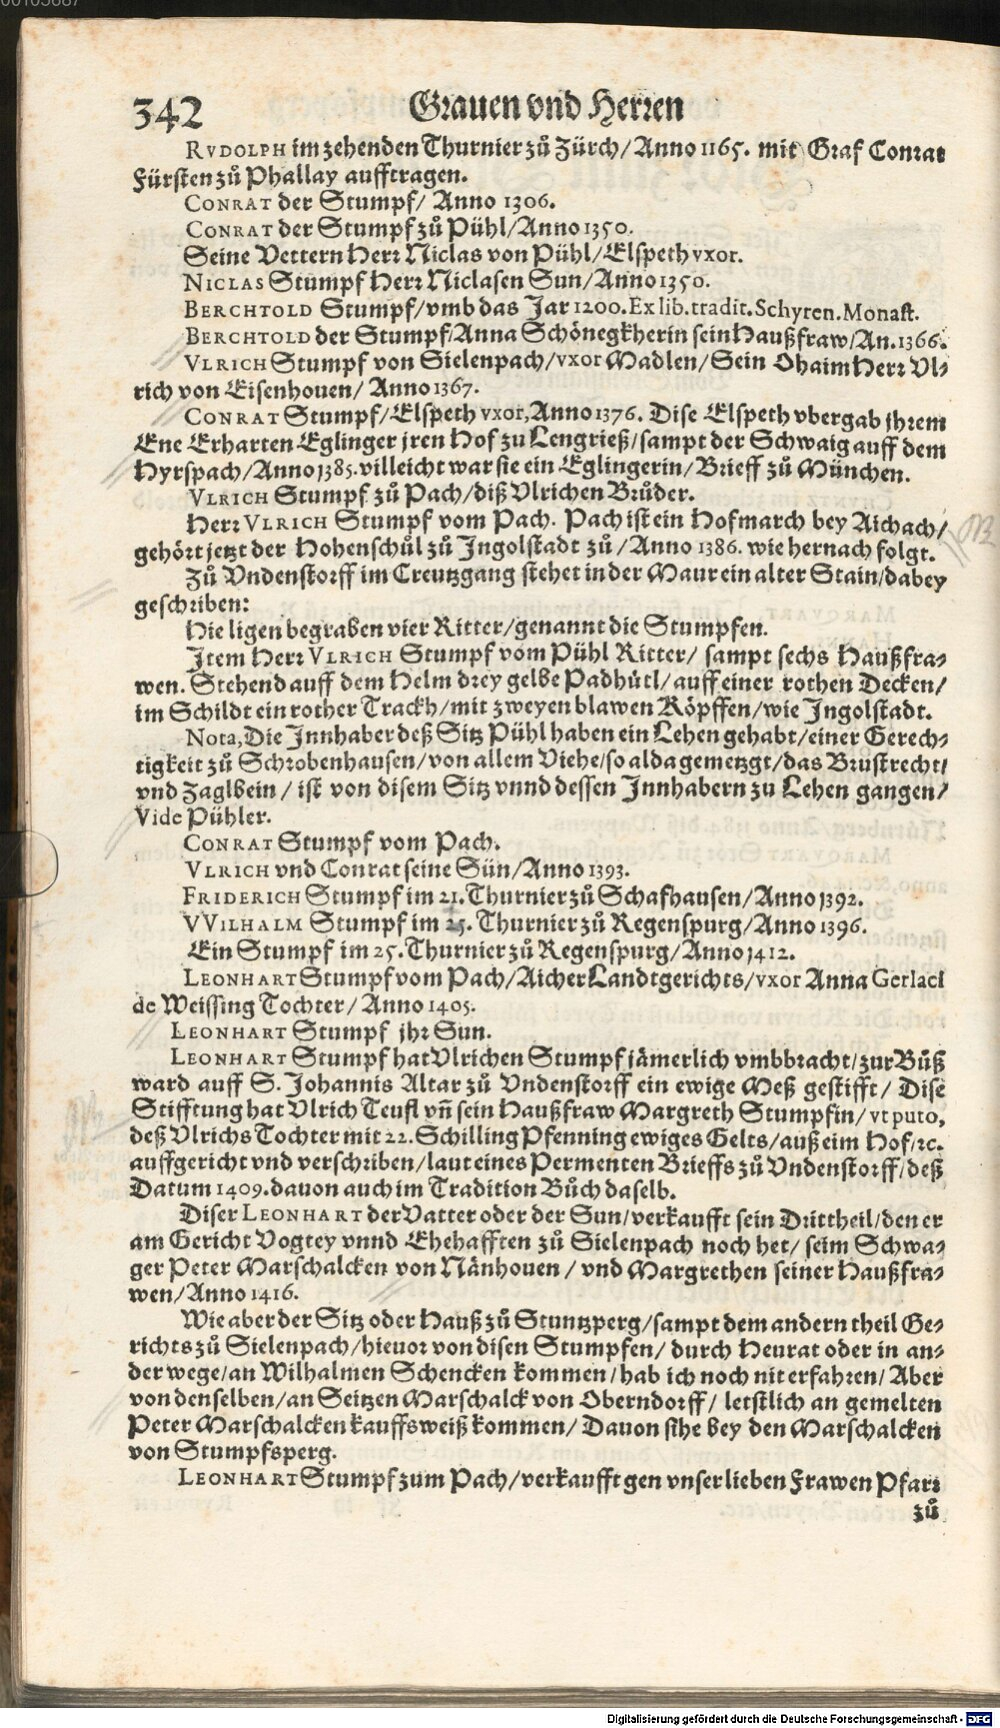 342 Grauen vnd Herren
RVDOLPH im zehenden Thurnier zů Zürch/Anno 1165. mit Graf Conrat
Fürsten zů Phallay aufftragen.
CONRAT der Stumpf/ Anno 1306.
CONRAT der Stumpf zů Pühl/Anno 1350.
Seine Vettern Herr Niclas von Pühl/Elspeth vxor.
NICLAS Stumpf Herr Niclasen Sun/Anno 1350.
BERCHTOLD Stumpf/vmb das Jar 1200. Ex lib. tradit. Schyren. Monast.
BERCHTOLD der Stumpf/Anna Schönegkherin sein Haußfraw/An. 1366.
VLRICH Stumpf von Sielenpach/vxor Madlen/Sein Ohaim Herr Vl-
rich von Eisenhouen/ Anno 1367.
CONRAT Stumpf/Elspeth vxor, Anno 1376. Dise Elspeth vbergab jhrem
Ene Erharten Eglinger jren Hof zu Lengrieß/sampt der Schwaig auff dem
Hyrspach/Anno 1385. villeicht war sie ein Eglingerin/Brieff zů München.
VLRICH Stumpf zů Pach/diß Vlrichen Brůder.
Herr VLRICH Stumpf vom Pach. Pach ist ein Hofmarch bey Aichach/
gehört jetzt der Hohenschůl zů Ingolstadt zů/Anno 1386. wie hernach folgt.
Zů Vndenstorff im Creutzgang stehet in der Maur ein alter Stain/dabey
geschriben:
Hie ligen begraben vier Ritter/genannt die Stumpfen.
Item Herr VLRICH Stumpf vom Pühl Ritter/ sampt sechs Haußfra-
wen. Stehend auff dem Helm drey gelbe Padhütl/auff einer rothen Decken/
im Schildt ein rother Trackh/mit zweyen blawen Köpffen/wie Ingolstadt.
Nota, Die Innhaber deß Sitz Pühl haben ein Lehen gehabt/einer Gerech-
tigkeit zů Schrobenhausen/von allem Viehe/so alda gemetzgt/das Brustrecht/
vnd Zaglbein/ ist von disem Sitz vnnd dessen Innhabern zu Lehen gangen/
Vide Pühler.
CONRAT Stumpf vom Pach.
VLRICH vnd Conrat seine Sün/Anno 1393.
FRIDERICH Stumpf im 21. Thurnier zů Schafhausen/Anno 1392.
VVILHALM Stumpf im 25. Thurnier zů Regenspurg/Anno 1396.
Ein Stumpf im 25. Thurnier zů Regenspurg/Anno 1412.
LEONHART Stumpf vom Pach/Aicher Landtgerichts/vxor Anna Gerlaci
de Weissing Tochter/ Anno 1405.
LEONHART Stumpf jhr Sun.
LEONHART Stumpf hat Vlrichen Stumpf jämerlich vmbbracht/zur Bůß
ward auff S. Johannis Altar zů Vndenstorff ein ewige Meß gestifft/ Dise
Stifftung hat Vlrich Teufl vñ sein Haußfraw Margreth Stumpfin/ vt puto,
deß Vlrichs Tochter mit 22. Schilling Pfenning ewiges Gelts/auß eim Hof/ꝛc.
auffgericht vnd verschriben/laut eines Permenten Brieffs zů Vndenstorff/deß
Datum 1409. dauon auch im Tradition Bůch daselb.
Diser LEONHART der Vatter oder der Sun/verkaufft sein Drittheil/den er
am Gericht Vogtey vnnd Ehehafften zů Sielenpach noch het/ seim Schwa-
ger Peter Marschalcken von Nänhouen/ vnd Margrethen seiner Haußfra-
wen/Anno 1416.
Wie aber der Sitz oder Hauß zů Stuntzperg/sampt dem andern theil Ge-
richts zů Sielenpach/hieuor von disen Stumpfen/ durch Heurat oder in an-
der wege/an Wilhalmen Schencken kommen/hab ich noch nit erfahren/Aber
von denselben/an Seitzen Marschalck von Oberndorff/ letstlich an gemelten
Peter Marschalcken kauffsweiß kommen/ Dauon sihe bey den Marschalcken
von Stumpfsperg.
LEONHART Stumpf zum Pach/verkaufft gen vnser lieben Frawen Pfarr
zů
Digitalisierung gefördert durch die Deutsche Forschungsgemeinschaft - DFG